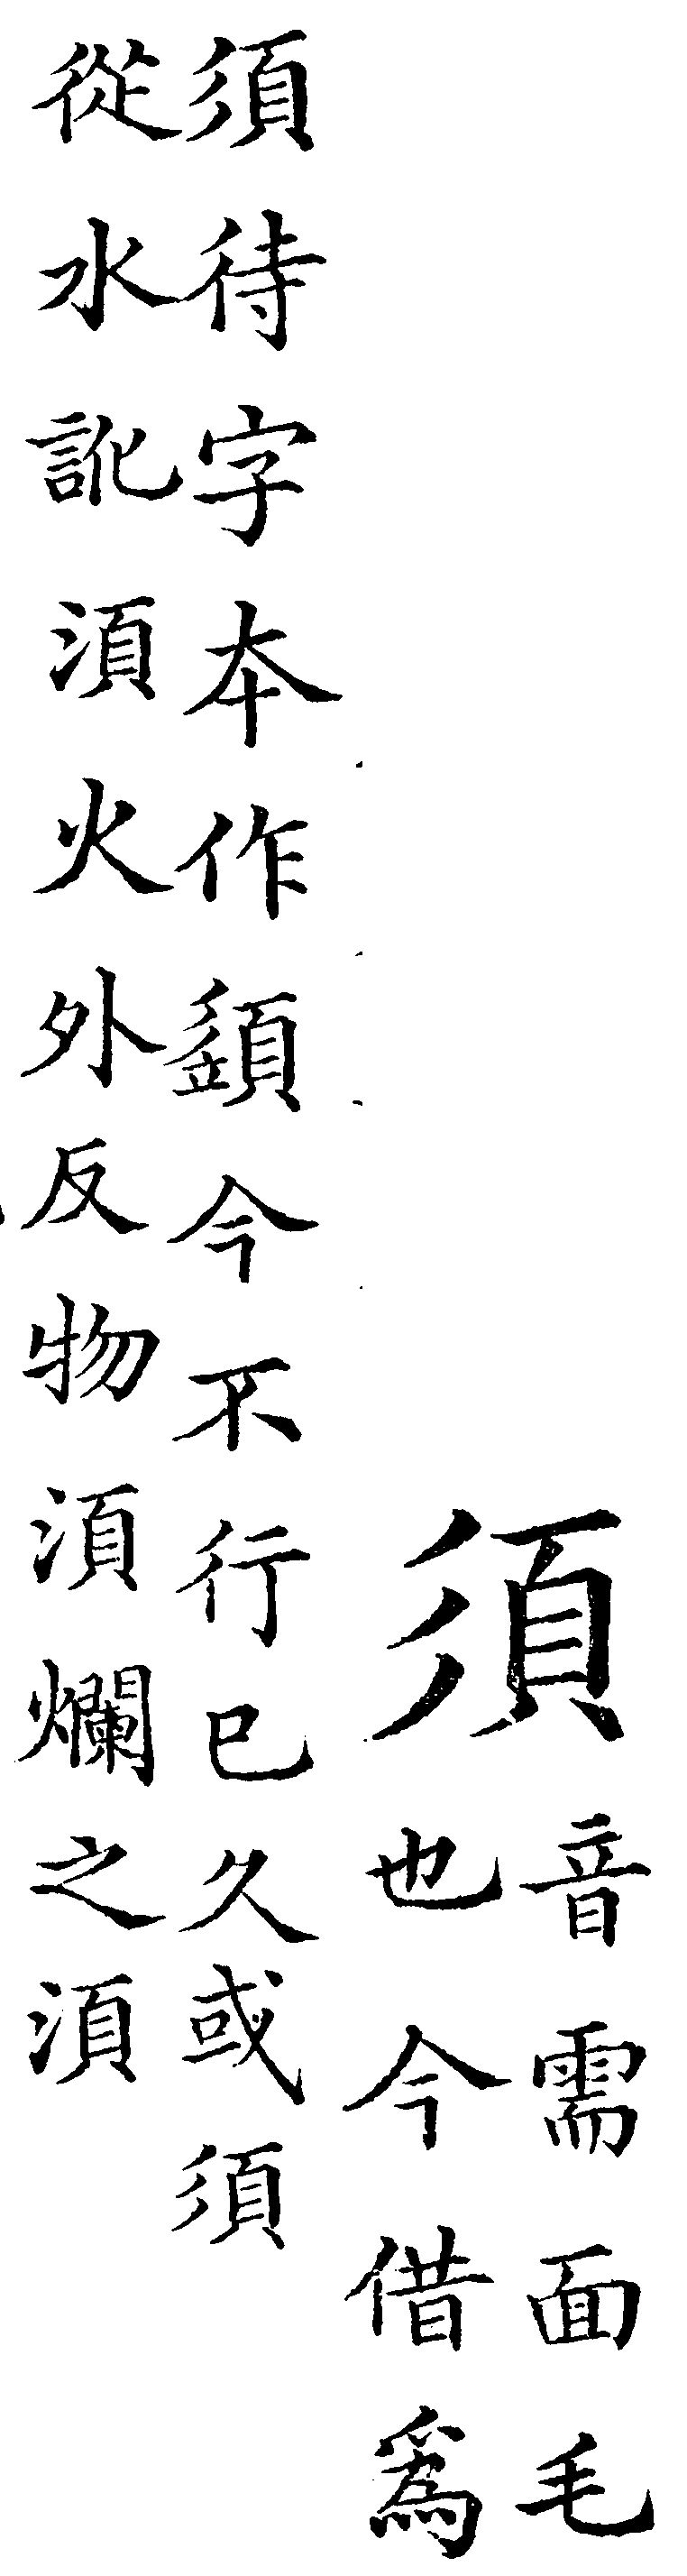 須
音需面毛
也今借爲
須待字夲作䇓今不行已久或須
從水訛湏火外反物湏爛之湏